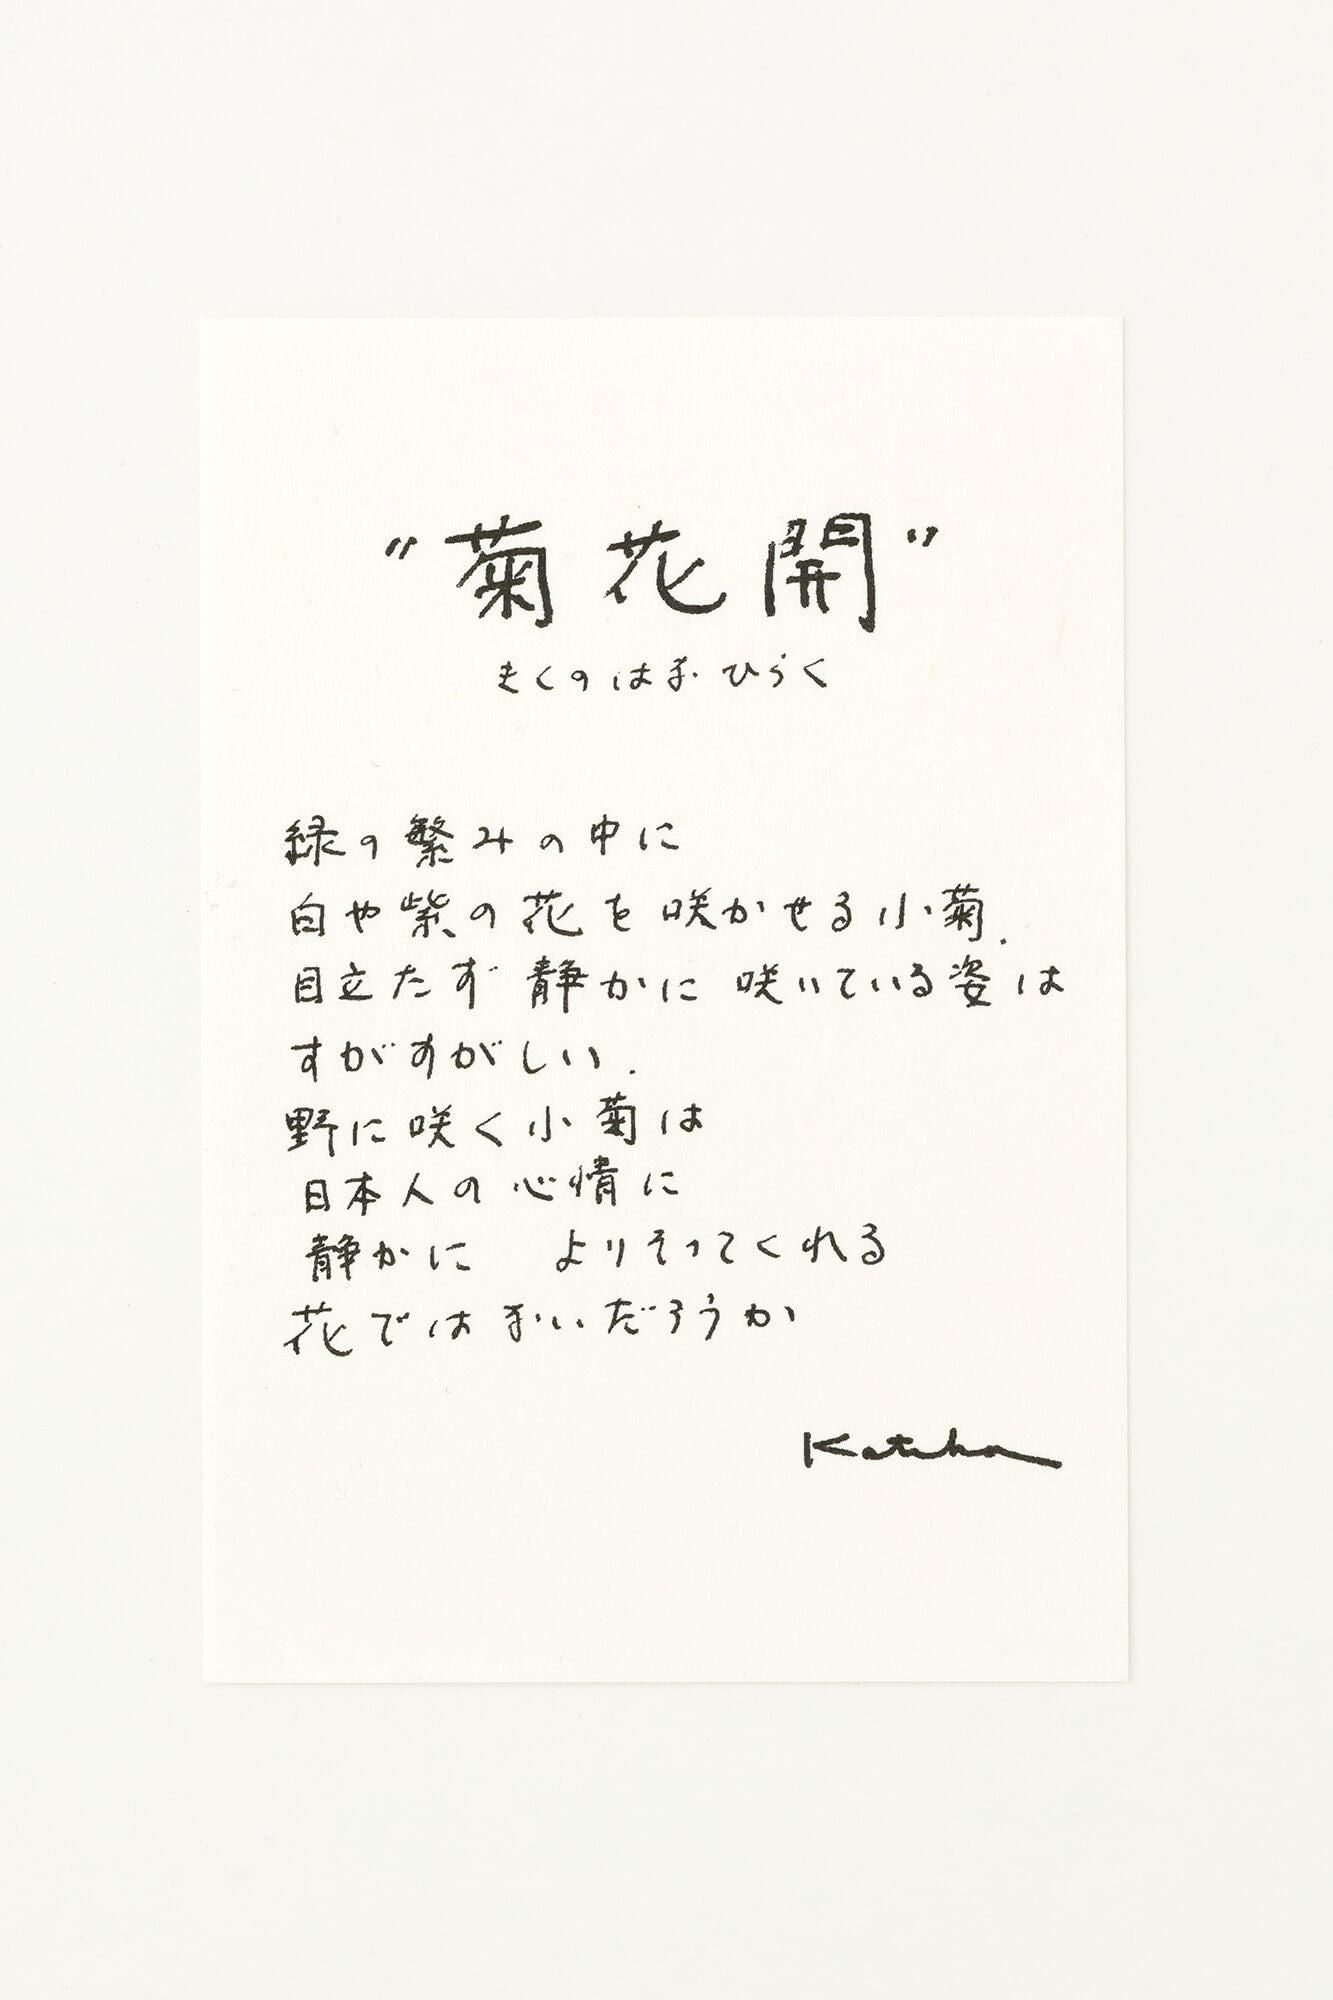 "菊花開"
きくのはなひらく
緑の繁みの中に
白や紫の花を咲かせる小菊.
目立たず静かに咲いている姿は
すがすがしい.
野に咲く小菊は
日本人の心情に
静かに よりそってくれる
花ではないだろうか